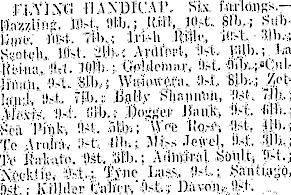 FLYING HANDICAP. Six furlongs.—
Dazzling, 10st. 9lb.; Rill, 10st. 8lb.; Sub-
lime, 10st. 7lb.; Irish Rifle, 10st. 3lb.;
Scotch, 10st. 2lb.; Ardfert, 9st. 13lb.; La
Reina, 9st. 10lb.; Goldemar, 9st. 9lb.;
9st. 8lb.; Waiowera, 9st. 8lb.; Zet-
land, 9st. 7lb.; Bally Shannon, 9st. 7lb.;
Alexis, 9st. 6lb.; Dogger Bank, 9st. 6lb.;
Sea Pink, 9st. 5lb.; Wee Rose, 9st. 4lb.;
Te Aroha, 9st. 4lb.; Miss Jewel, 9st. 3lb.;
Te Rakato, 9st. 3lb.; Admiral Soult, 9st.;
Necktie, 9st.; Tyne Lass, 9st.; Santiago,
9st.; Killder Caher, 9st.; Davon, 9st.